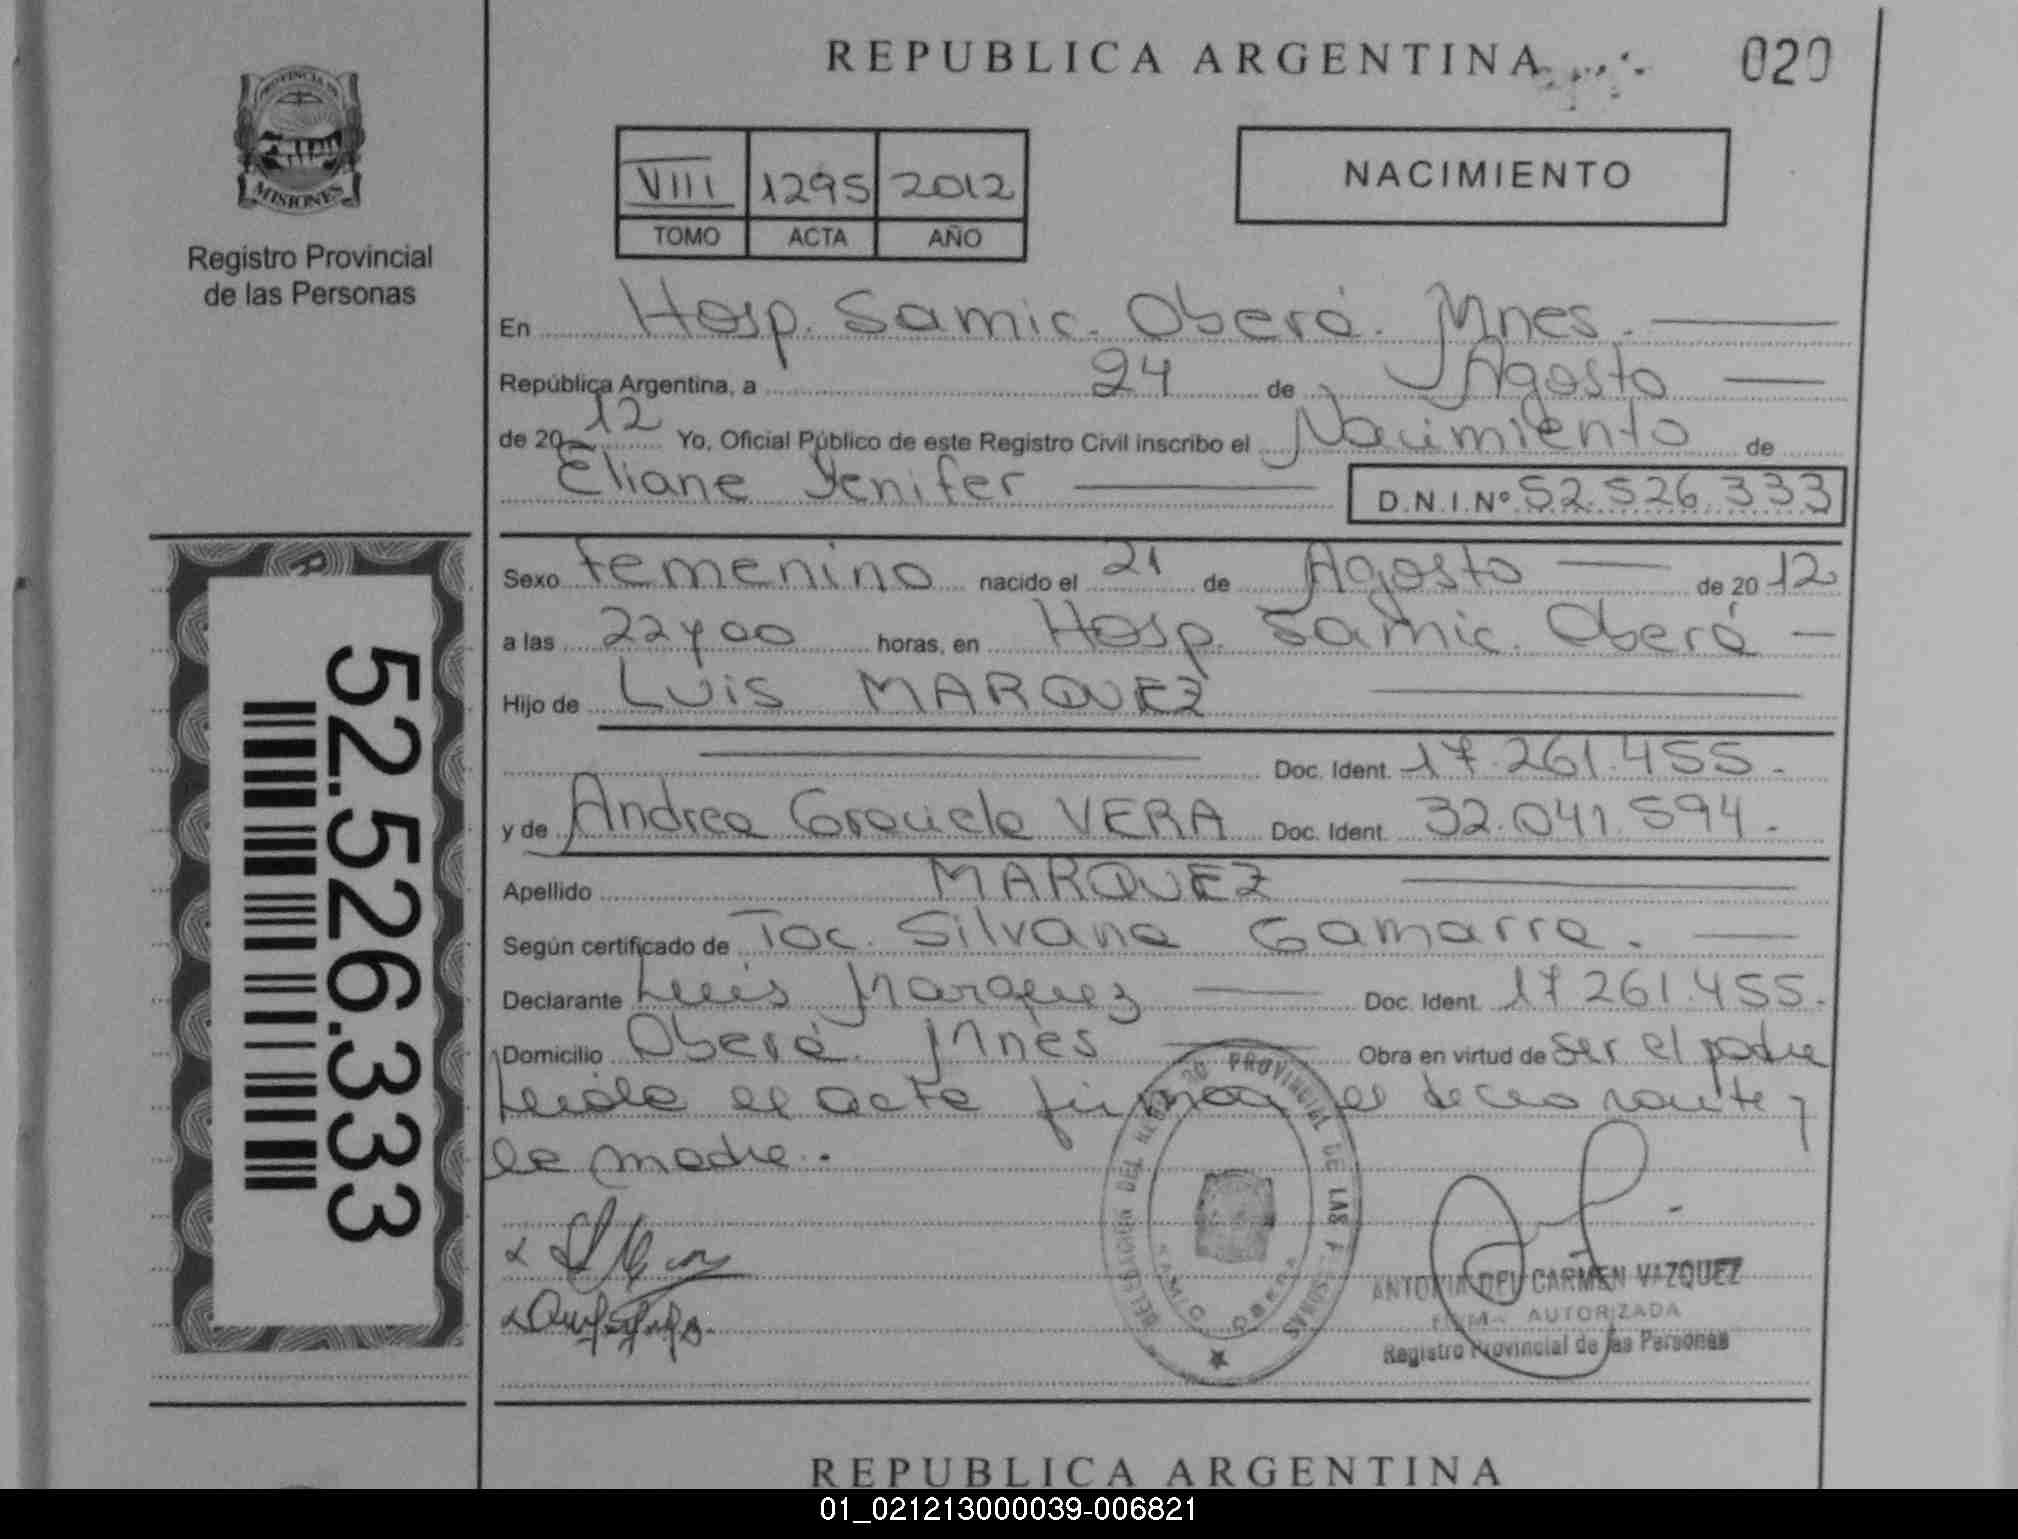 REPUBLICA ARGENTINA
020
PROVINCIA DE
MISIONES
Registro Provincial
de las Personas
VIII 1295 2012
TOMO ACTA AÑO
NACIMIENTO
En Hosp. Samic. Oberá. Mnes.
República Argentina, a 24 de Agosto
de 2012 Yo, Oficial Público de este Registro Civil inscribo el Nacimiento de
Eliane Yenifer D.N.I.Nº 52.526.333
Sexo femenino nacido el 21 de Agosto de 2012
a las 22 y 00 horas, en Hosp. Samic. Oberá
Hijo de Luis MARQUEZ
Doc. Ident. 17.261.455.
y de Andrea Graciela VERA Doc. Ident. 32.041.594.
Apellido MARQUEZ
Según certificado de Toc. Silvana Gamarra.
Declarante Luis Marquez Doc. Ident. 17 261.455.
Domicilio Oberá. Mnes Obra en virtud de ser el padre
Leida el acta firman el declarante y
la madre.
52.526.333
PROVINCIAL DE LAS PERSONAS
SAMIC OBERA
ANTONIA DEL CARMEN VAZQUEZ
FIRMA AUTORIZADA
Registro Provincial de las Personas
REPUBLICA ARGENTINA
01_021213000039-006821